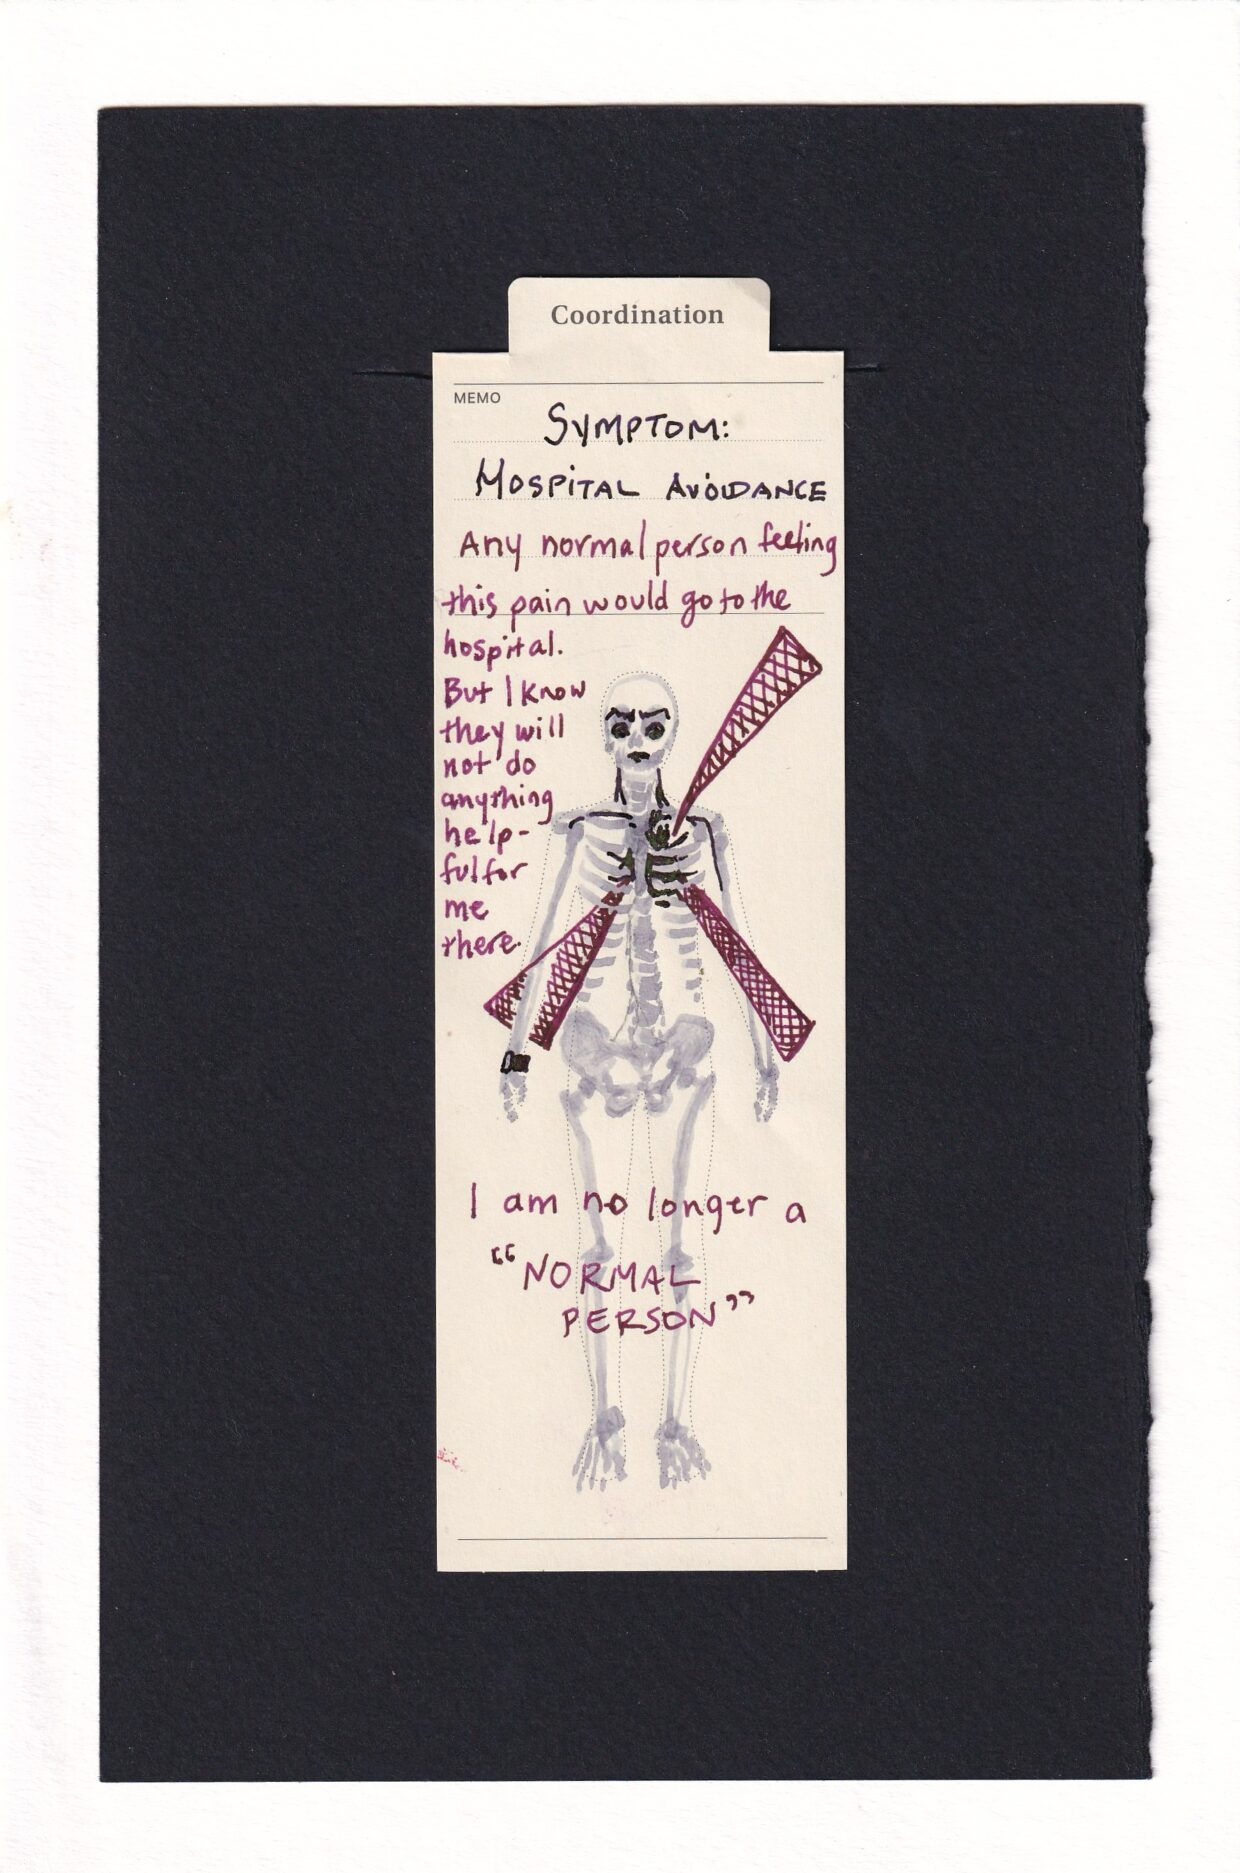 Coordination
MEMO
SYMPTOM:
HOSPITAL AVOIDANCE
Any normal person feeling
this pain would go to the
hospital.
But I know
they will
not do
anything
help-
ful for
me
there.
I am no longer a
"NORMAL
PERSON"